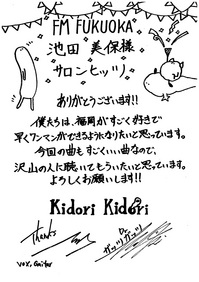 FM FUKUOKA
池田 美保様
サロンヒッツ
ありがとうございます!!
僕たちは、福岡がすごく好きで
早くワンマンができるようになりたいと思っています。
今回の曲もすごくいい曲なので、
沢山の人に聴いてもらいたいと思っています。
よろしくお願いします!!
Kidori Kidori
Thanks
Dr.
ガッツガッツ
Vox, Guitar